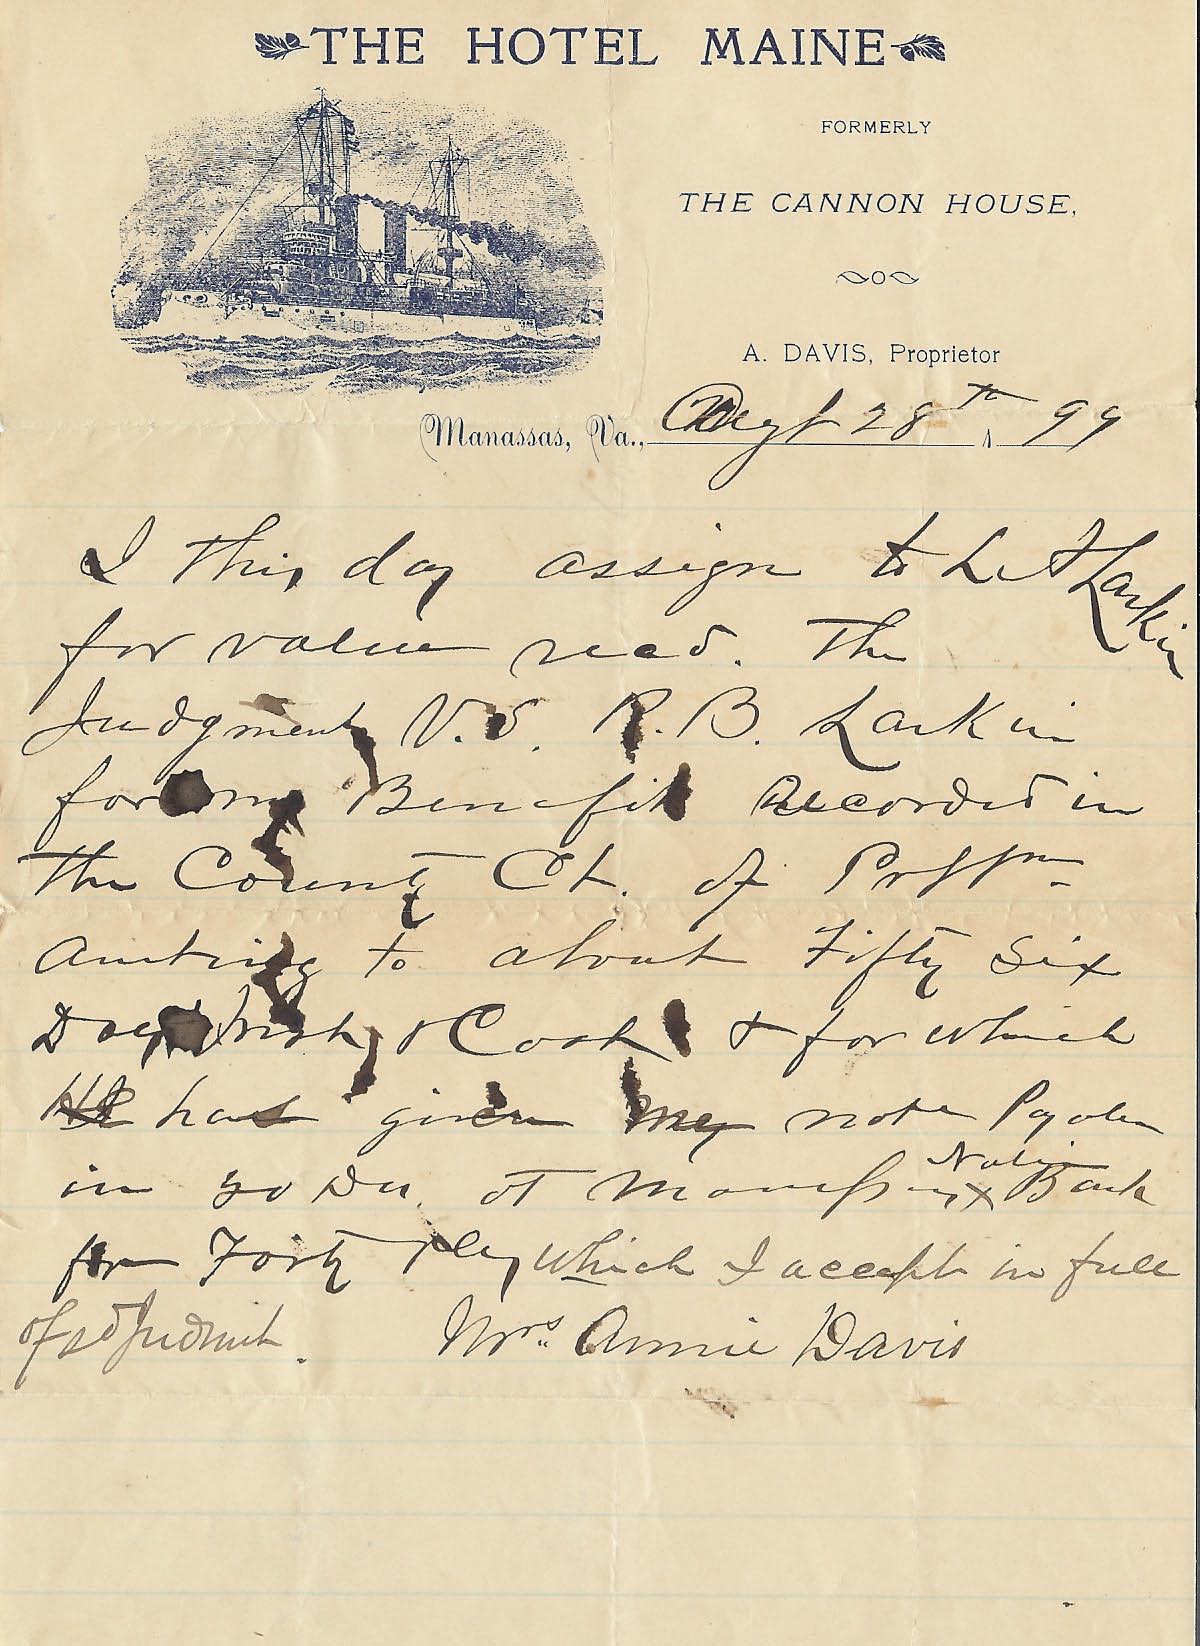 THE HOTEL MAINE
FORMERLY
THE CANNON HOUSE,
A. DAVIS, Proprietor
Manassas, Va., 28th 1 99
I this day assign to L A Larkin
for value recd. The
Judgment V.S. R. B. Larkin
for my Benefit Recorded in
the County Ct. of Pr Wm
amting to about Fifty Six
& Cost & for which
He has given my note
in Ds at Bank
for Forty which I accept in full
of sd Judmnt.
Mrs. Annie Davis